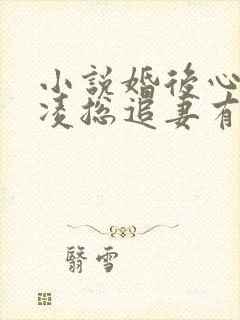 小説婚後心
凌総追妻有
翳雪